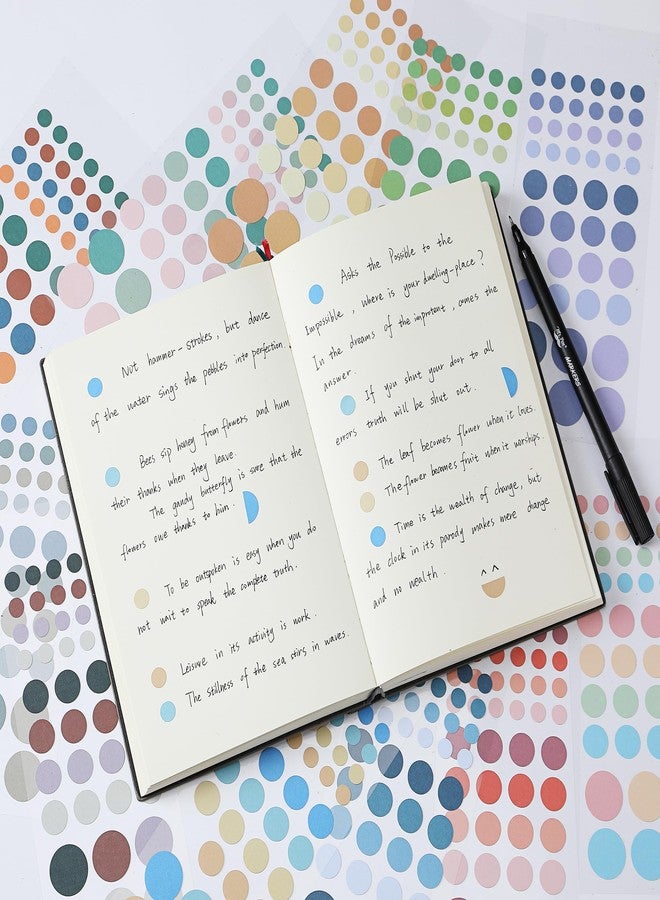 Not hammer-strokes, but dance
of the water sings the pebbles into perfection.
Bees sip honey from flowers and hum
their thanks when they leave.
The gaudy butterfly is sure that the
flowers owe thanks to him.
To be outspoken is easy when you do
not wait to speak the complete truth.
Leisure in its activity is work.
The stillness of the sea stirs in waves.
Asks the Possible to the
Impossible, where is your dwelling-place?
In the dreams of the impotent, comes the
answer.
If you shut your door to all
errors truth will be shut out.
The leaf becomes flower when it loves.
The flower becomes fruit when it worships.
Time is the wealth of change, but
the clock in its parody makes mere change
and no wealth.
MARKERS